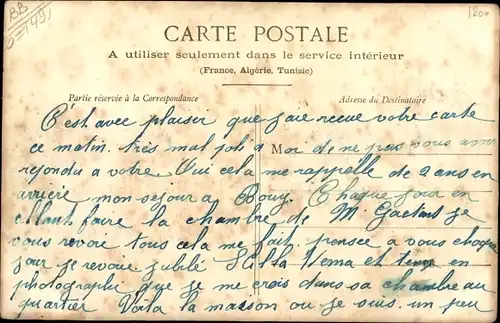 BB
1200
CARTE POSTALE
A utiliser seulement dans le service intérieur
(France, Algérie, Tunisie)
Partie réservée à la Correspondance
Adresse du Destinataire
C'est avec plaisir que j'aie recue votre carte
ce matin. très mal poli a Moi de ne pas vous avoir
rejondu a votre. Oui cela me rappelle de 2 ans en
arrière mon sejour a Bouy. Chaque jour en
allant faire la chambre de M. Gaetant je
vous revoie tous cela me fait pensee a vous chaque
jour je revoie
photographi que je me crois dans sa chambre au
quartier Voila la maison ou je suis. un peu